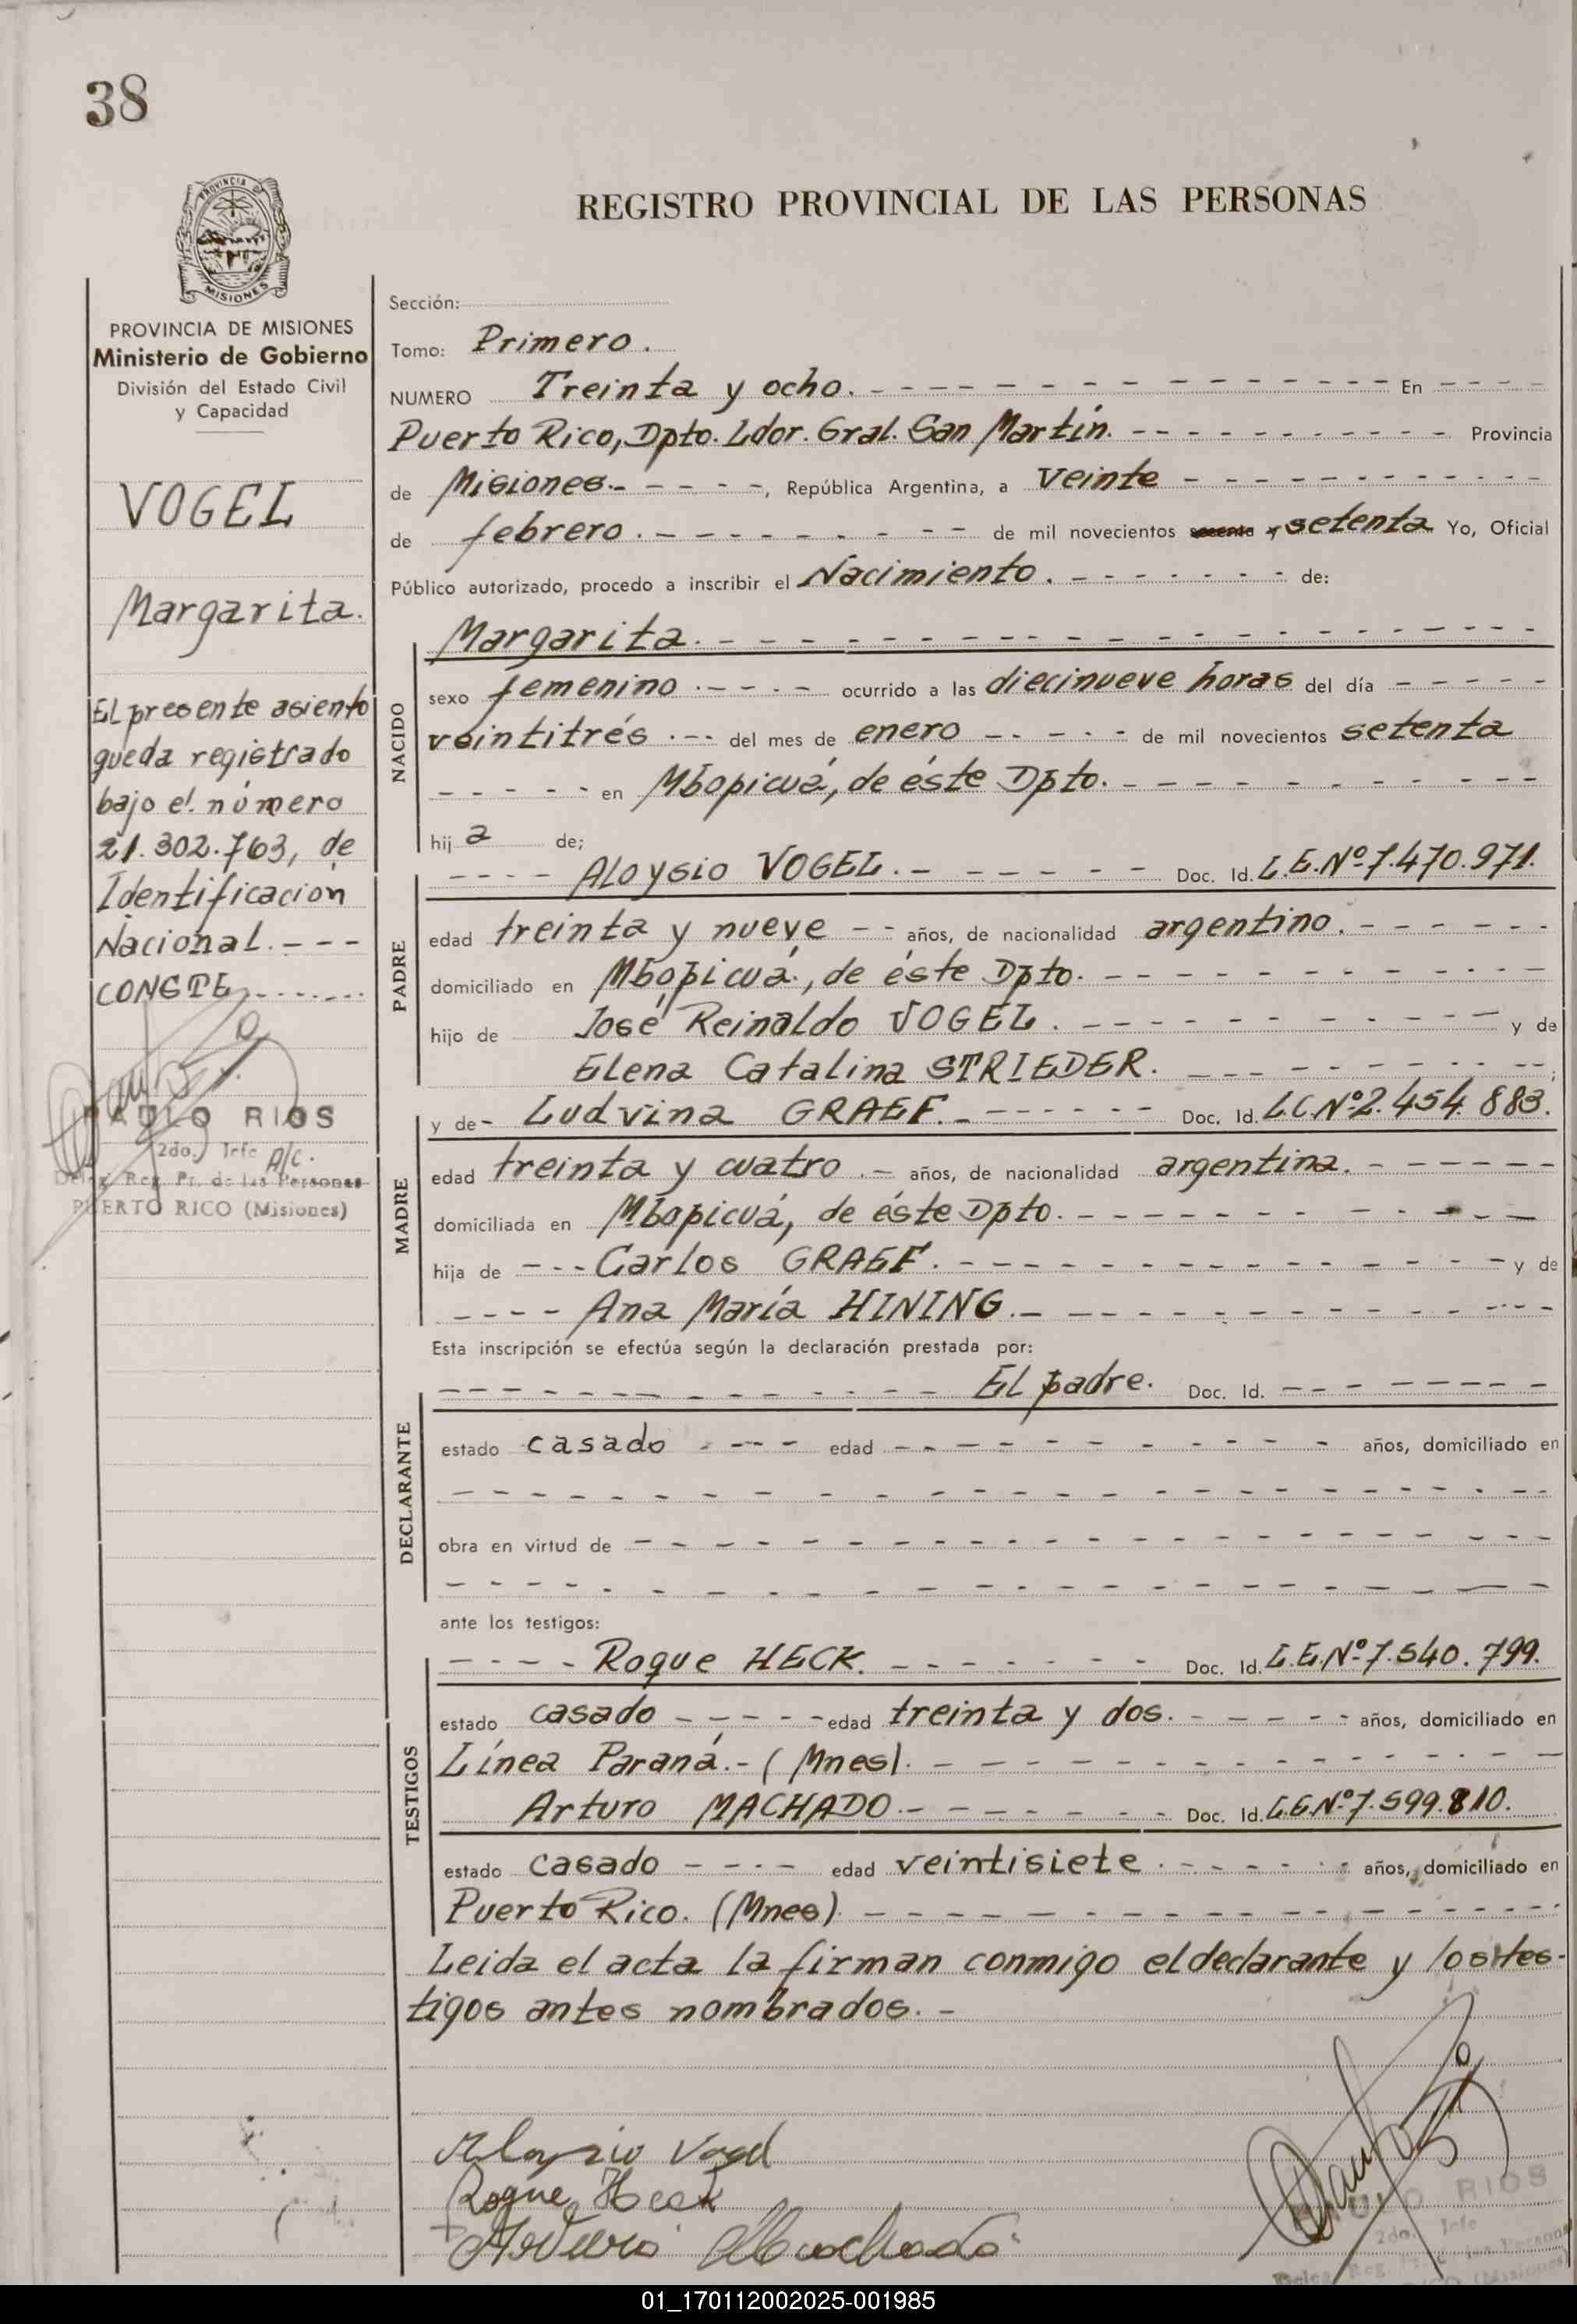 38
PROVINCIA DE
MISIONES
REGISTRO PROVINCIAL DE LAS PERSONAS
PROVINCIA DE MISIONES
Ministerio de Gobierno
División del Estado Civil
y Capacidad
VOGEL
Margarita.
El presente asiento
queda registrado
bajo el número
21.302.763, de
Identificación
Nacional. - - -
CONSTE.
PABLO RIOS
2do. Jefe A/C.
Deleg. Reg. Pr. de las Personas
PUERTO RICO (Misiones)
Sección:
Tomo: Primero.
NUMERO Treinta y ocho. - - - En - - -
Puerto Rico, Dpto. Ldor. Gral. San Martín. - - - Provincia
de Misiones. - - -, República Argentina, a veinte - - -
de febrero. - - - de mil novecientos sesenta y setenta Yo, Oficial
Público autorizado, procedo a inscribir el Nacimiento. - - - de:
NACIDO
Margarita. - - -
sexo femenino. - - - ocurrido a las diecinueve horas del día - - -
veintitrés. - - del mes de enero - - - de mil novecientos setenta
- - - en Mbopicuá, de éste Dpto. - - -
hij a de;
PADRE
- - - Aloysio VOGEL. - - - Doc. Id. L.E.Nº 7.470.971.
edad treinta y nueve - - años, de nacionalidad argentino. - - -
domiciliado en Mbopicuá, de éste Dpto. - - -
hijo de José Reinaldo VOGEL. - - - y de
Elena Catalina STRIEDER. - - -;
MADRE
y de - Ludvina GRAEF. - - - Doc. Id. L.C.Nº 2.454.883.
edad treinta y cuatro. - años, de nacionalidad argentina. - - -
domiciliada en Mbopicuá, de éste Dpto. - - -
hija de - - - Carlos GRAEF. - - - y de
- - - Ana María HINING. - - -
Esta inscripción se efectúa según la declaración prestada por:
DECLARANTE
- - - El padre. Doc. Id. - - -
estado casado - - - edad - - - años, domiciliado en
- - -
obra en virtud de - - -
- - -
ante los testigos:
TESTIGOS
- - - Roque HECK. - - - Doc. Id. L.E.Nº 7.540.799.
estado casado - - - edad treinta y dos. - - - años, domiciliado en
Línea Paraná. - (Mnes). - - -
Arturo MACHADO. - - - Doc. Id. L.E.Nº 7.599.810.
estado casado - - - edad veintisiete. - - - años, domiciliado en
Puerto Rico. (Mnes). - - -
Leida el acta la firman conmigo el declarante y los tes-
tigos antes nombrados. -
Aloysio Vogel
Roque Heck
Arturo Machado
PABLO RIOS
2do. Jefe
01_170112002025-001985